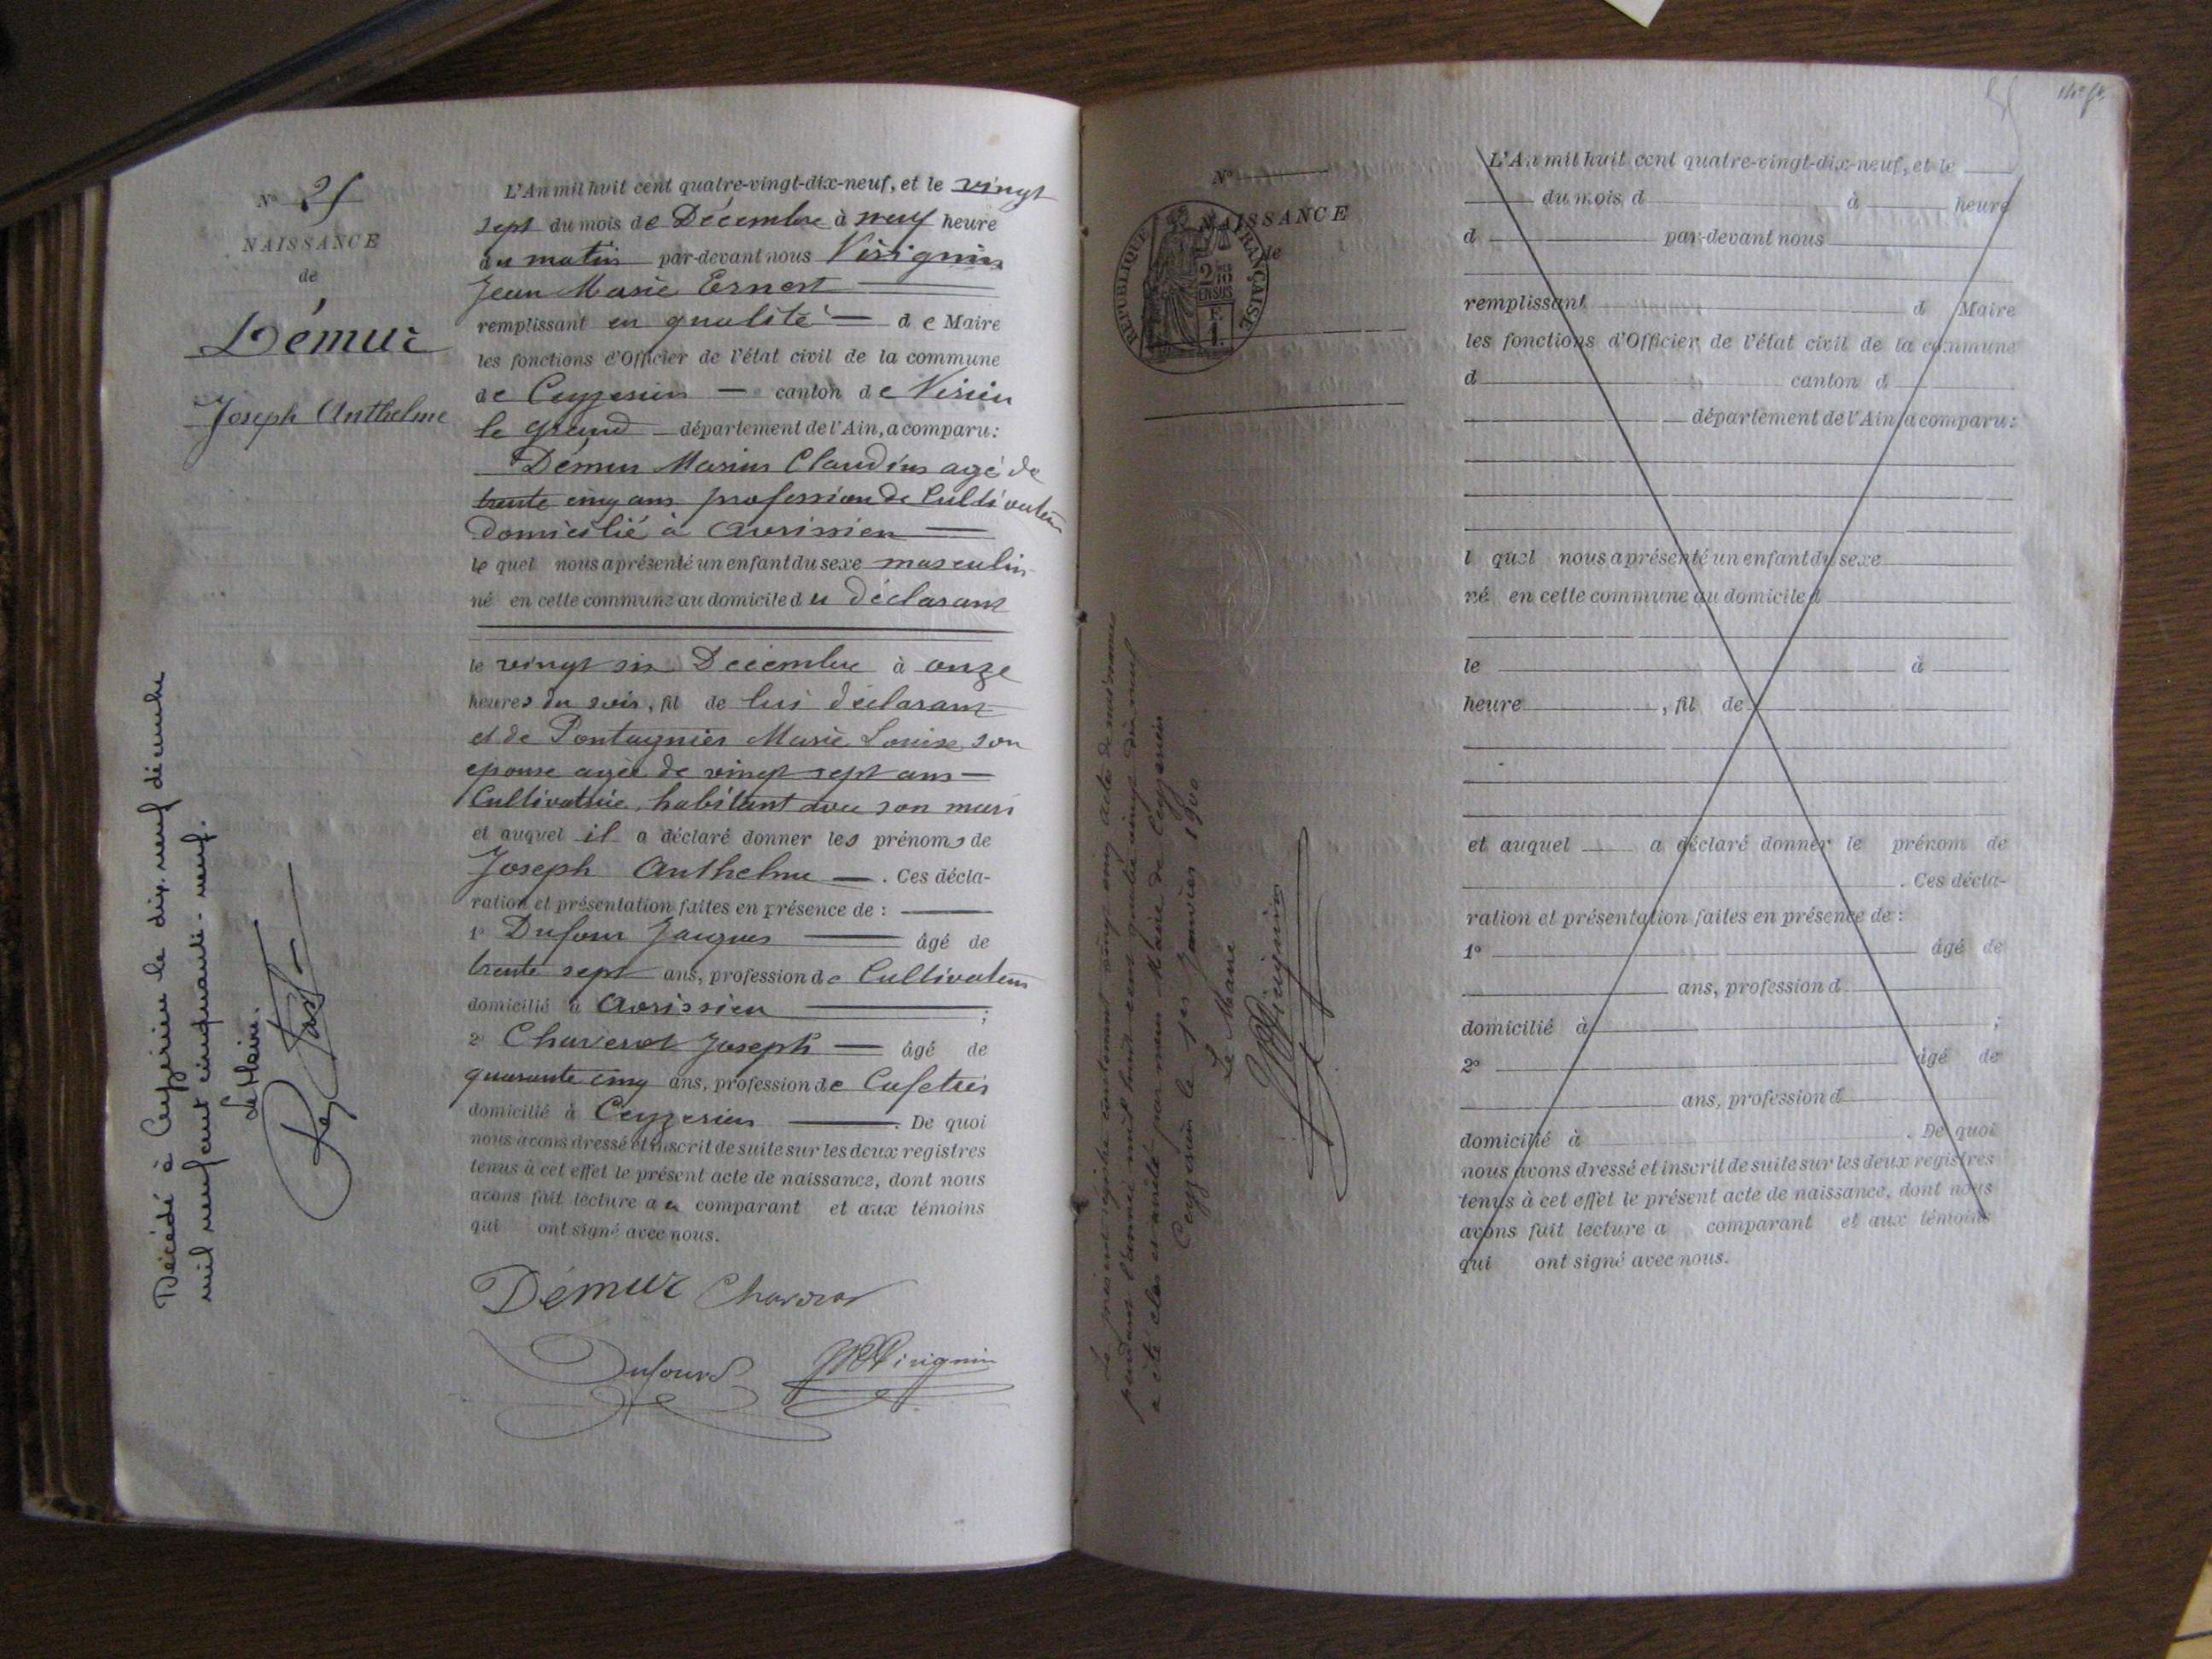 Nº 25
NAISSANCE
de
Démur
Joseph Anthelme
L'An mil huit cent quatre-vingt-dix-neuf, et le vingt
sept du mois de Décembre à neuf heure
du matin par-devant nous Virignin
Jean Marie Ernest
remplissant en qualité de Maire
les fonctions d'Officier de l'état civil de la commune
de Ceyzerieu canton de Virieu
le grand département de l'Ain, a comparu:
Démur Marius Claudius agé de
trente cinq ans profession de Cultivateur
domicilié à Avrissieu
le quel nous a présenté un enfant du sexe masculin
né en cette commune au domicile du déclarant
le vingt six Décembre à onze
heures du soir, fil de lui déclarant
et de Pontagnier Marie Louise son
epouse agée de vingt sept ans
Cultivatrice habitant avec son mari
et auquel il a déclaré donner les prénoms de
Joseph Anthelme . Ces décla-
ration et présentation faites en présence de :
1º Dufour Jacques âgé de
trente sept ans, profession de Cultivateur
domicilié à Avrissieu ;
2º Chaverot Joseph âgé de
quarante cinq ans, profession de Cafetier
domicilié à Ceyzerieu . De quoi
nous avons dressé et inscrit de suite sur les deux registres
tenus à cet effet le présent acte de naissance, dont nous
avons fait lecture au comparant et aux témoins
qui ont signé avec nous.
Démur Chaverot
Dufour Virignin
Décédé à Ceyzérieu le dix-neuf décembre
mil neuf cent cinquante-neuf.
Le Maire.
Nº
NAISSANCE
de
RÉPUBLIQUE FRANÇAISE
2/10 EN SUS
Le présent registre contenant vingt cinq actes de naissances
pendant l'année mil huit cent quatre vingt dix neuf
a été clos et arrêté par nous Maire de Ceyzerieu
Ceyzerieu le 1er Janvier 1900
Le Maire
Virignin
L'An mil huit cent quatre-vingt-dix-neuf, et le
du mois d à heure
d par-devant nous
remplissant d Maire
les fonctions d'Officier de l'état civil de la commune
d canton d
département de l'Ain, a comparu:
l quel nous a présenté un enfant du sexe
né en cette commune au domicile d
le à
heure , fil de
et auquel a déclaré donner le prénom de
. Ces décla-
ration et présentation faites en présence de :
1º âgé de
ans, profession d
domicilié à ;
2º âgé de
ans, profession d
domicilié à . De quoi
nous avons dressé et inscrit de suite sur les deux registres
tenus à cet effet le présent acte de naissance, dont nous
avons fait lecture a comparant et aux témoins
qui ont signé avec nous.